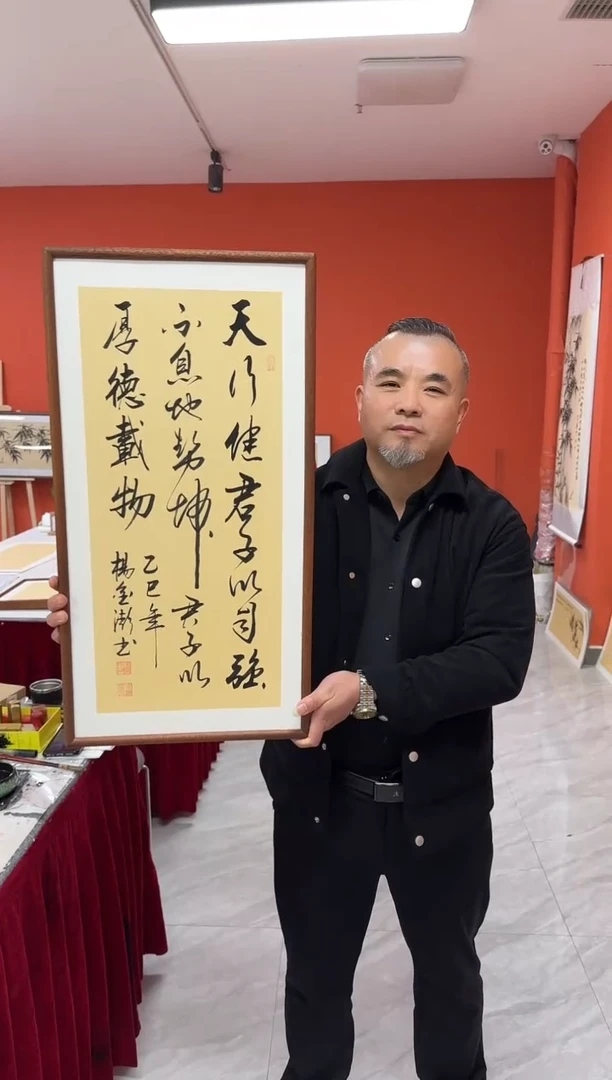 天行健君子以自強
不息地勢坤君子以
厚德載物
乙巳年
楊金书